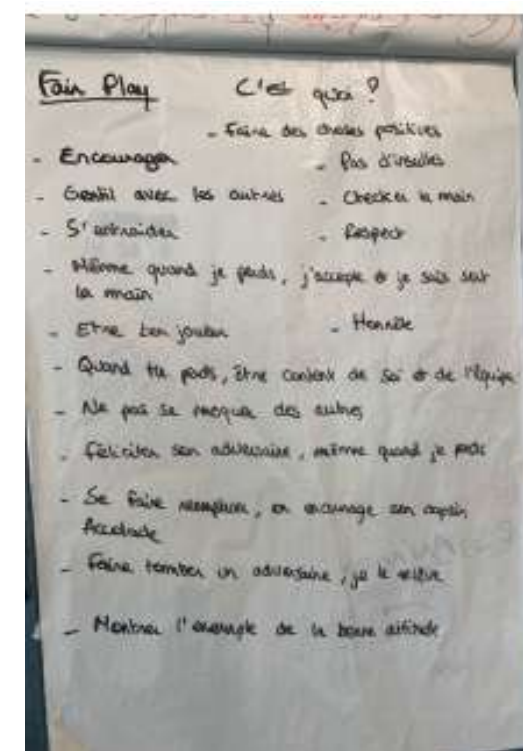 Fair Play C'est quoi ?
- Faire des choses positives
- Encourager - Pas d'insultes
- Gentil avec les autres - Checker la main
- S'entraider - Respect
- Même quand je perds, j'accepte et je sais serrer
la main
- Etre bon joueur - Honnête
- Quand tu perds, être content de soi et de l'équipe
- Ne pas se moquer des autres
- Féliciter son adversaire, même quand je perds
- Se faire remplacer, on encourage son copain
Accolade
- Faire tomber un adversaire, je le relève
- Montrer l'exemple de la bonne attitude